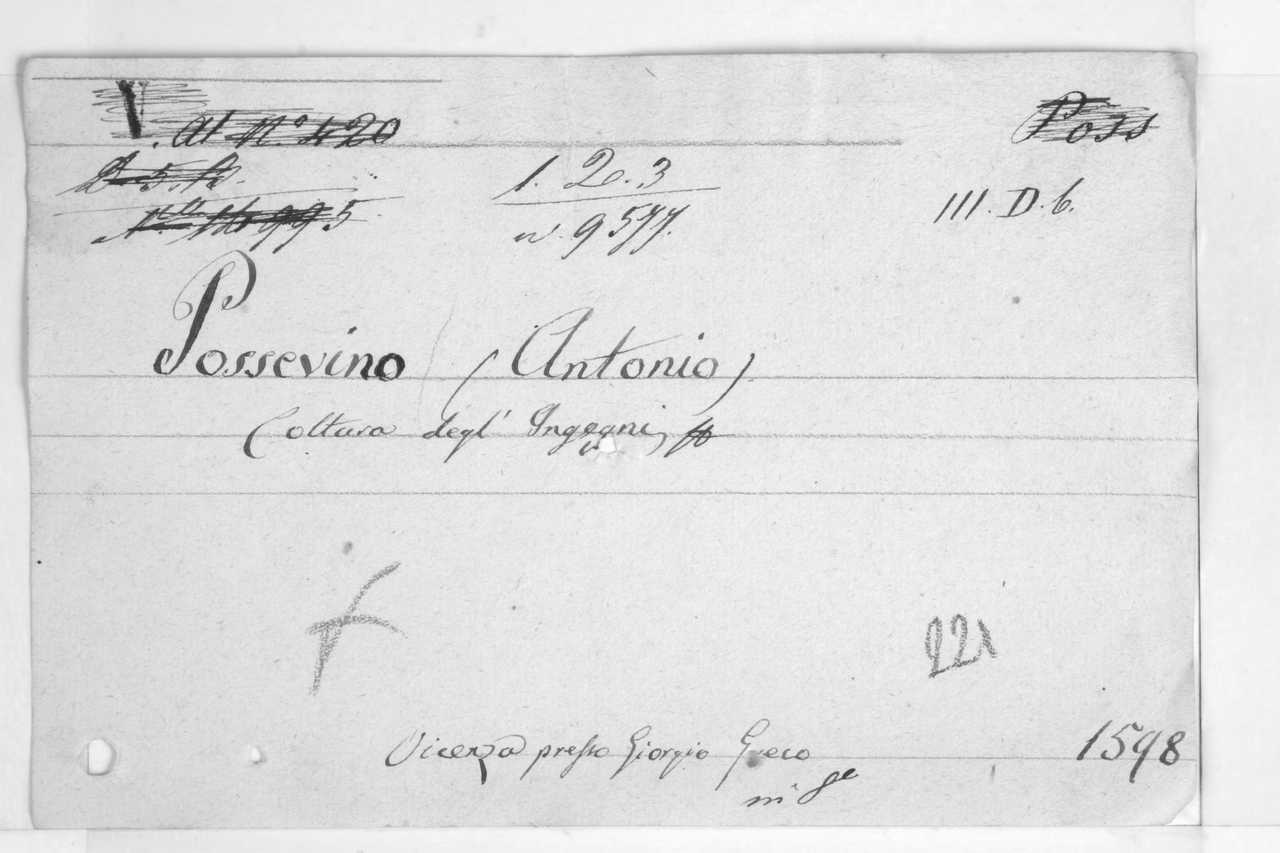 V. al N.º 420
Poss
D. 5.
1. 2. 3
III. D. 6.
N.º 14995
n. 9577.
Possevino (Antonio)
Coltura degl' Ingegni
221
Vicenza presso Giorgio Greco
1598
in 8º